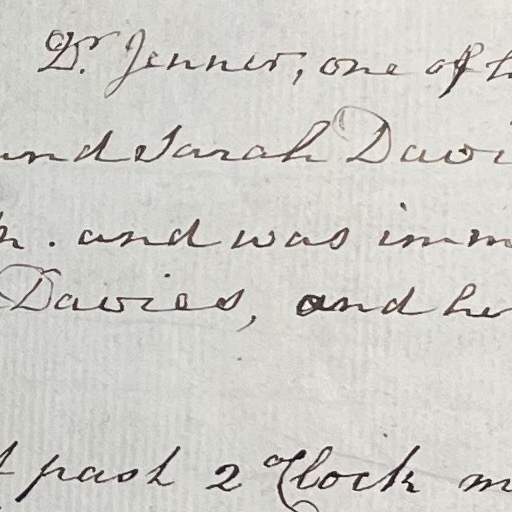 Dr. Jenner, one of
and Sarah Davi
. and was imm
Davies, and he
past 2 o'Clock m